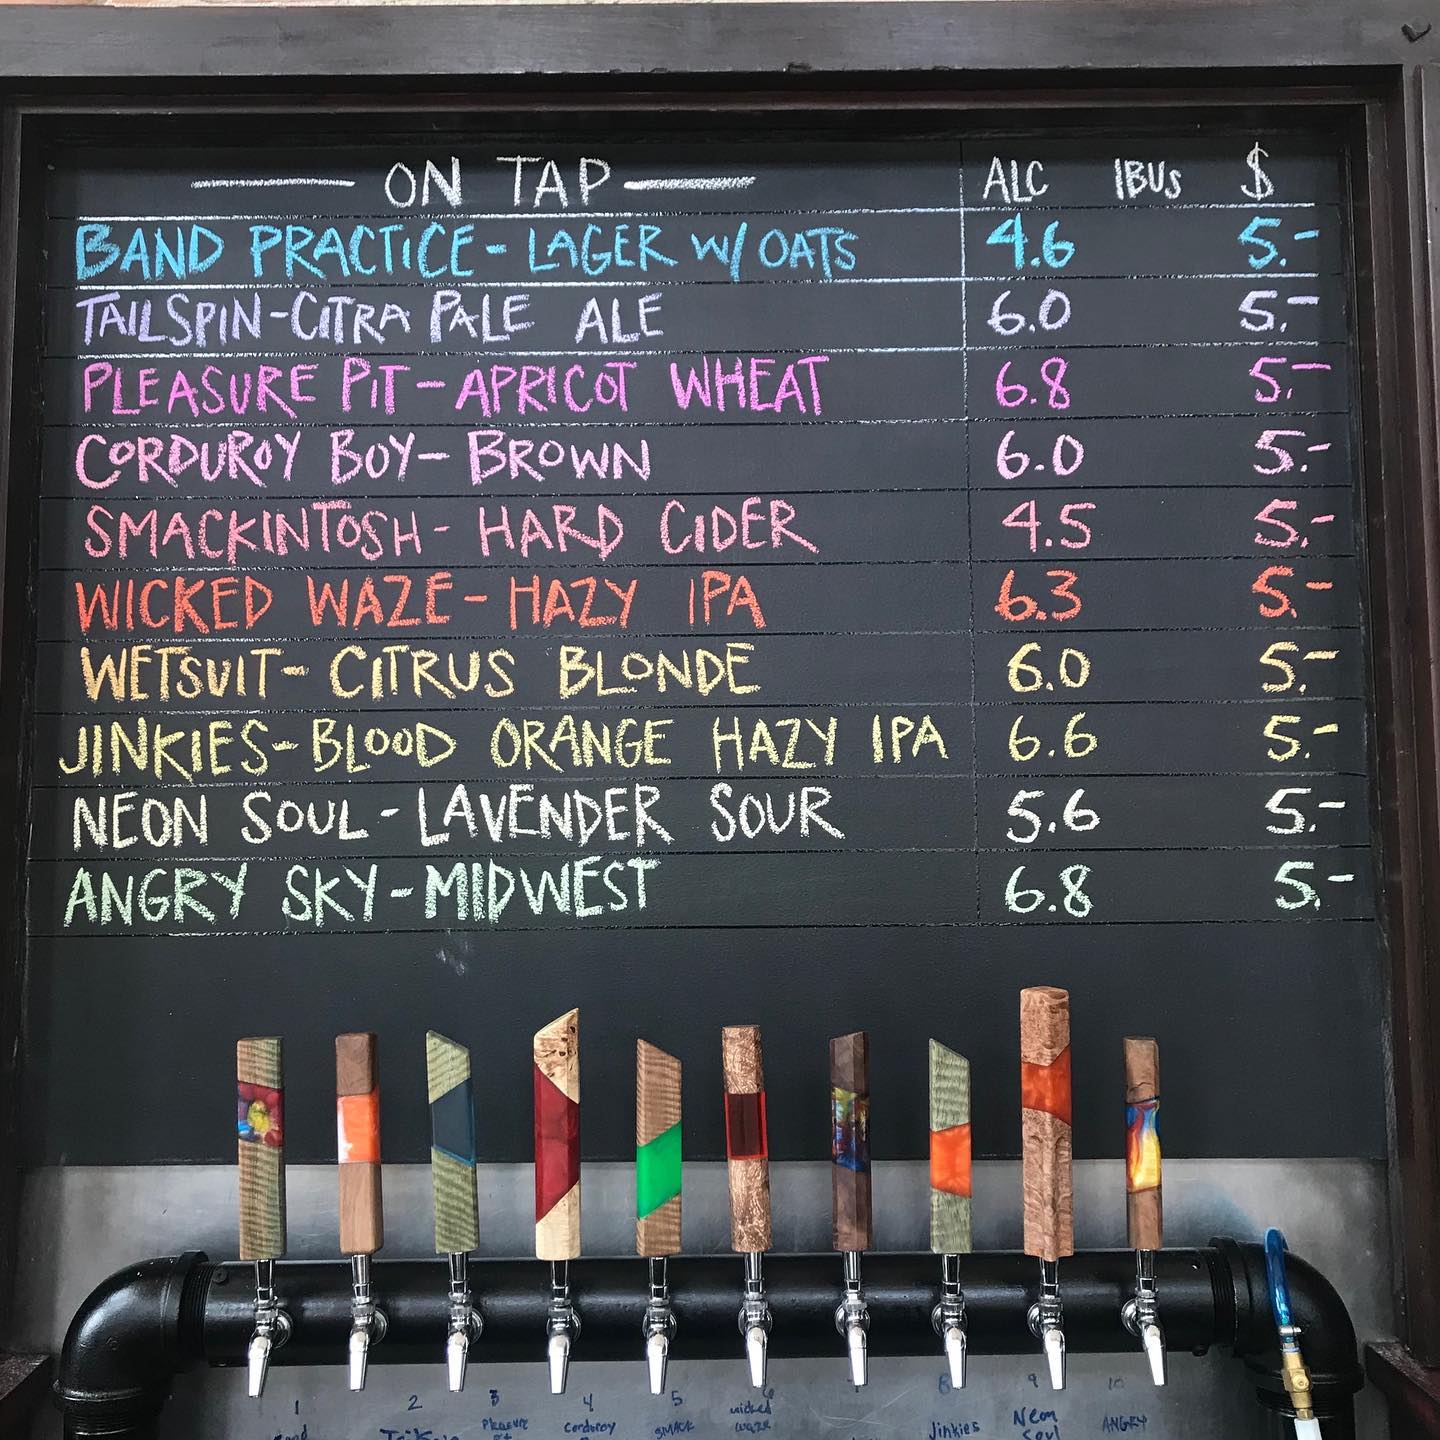 ON TAP ALC IBUs $
BAND PRACTICE - LAGER W/ OATS 4.6 5.-
TAILSPIN - CITRA PALE ALE 6.0 5.-
PLEASURE PIT - APRICOT WHEAT 6.8 5.-
CORDUROY BOY - BROWN 6.0 5.-
SMACKINTOSH - HARD CIDER 4.5 5.-
WICKED WAZE - HAZY IPA 6.3 5.-
WETSUIT - CITRUS BLONDE 6.0 5.-
JINKIES - BLOOD ORANGE HAZY IPA 6.6 5.-
NEON SOUL - LAVENDER SOUR 5.6 5.-
ANGRY SKY - MIDWEST 6.8 5.-
1 2 3 4 5 6 8 9 10
Pleasure corduroy SMACK wicked waze Jinkies Neon Soul ANGRY